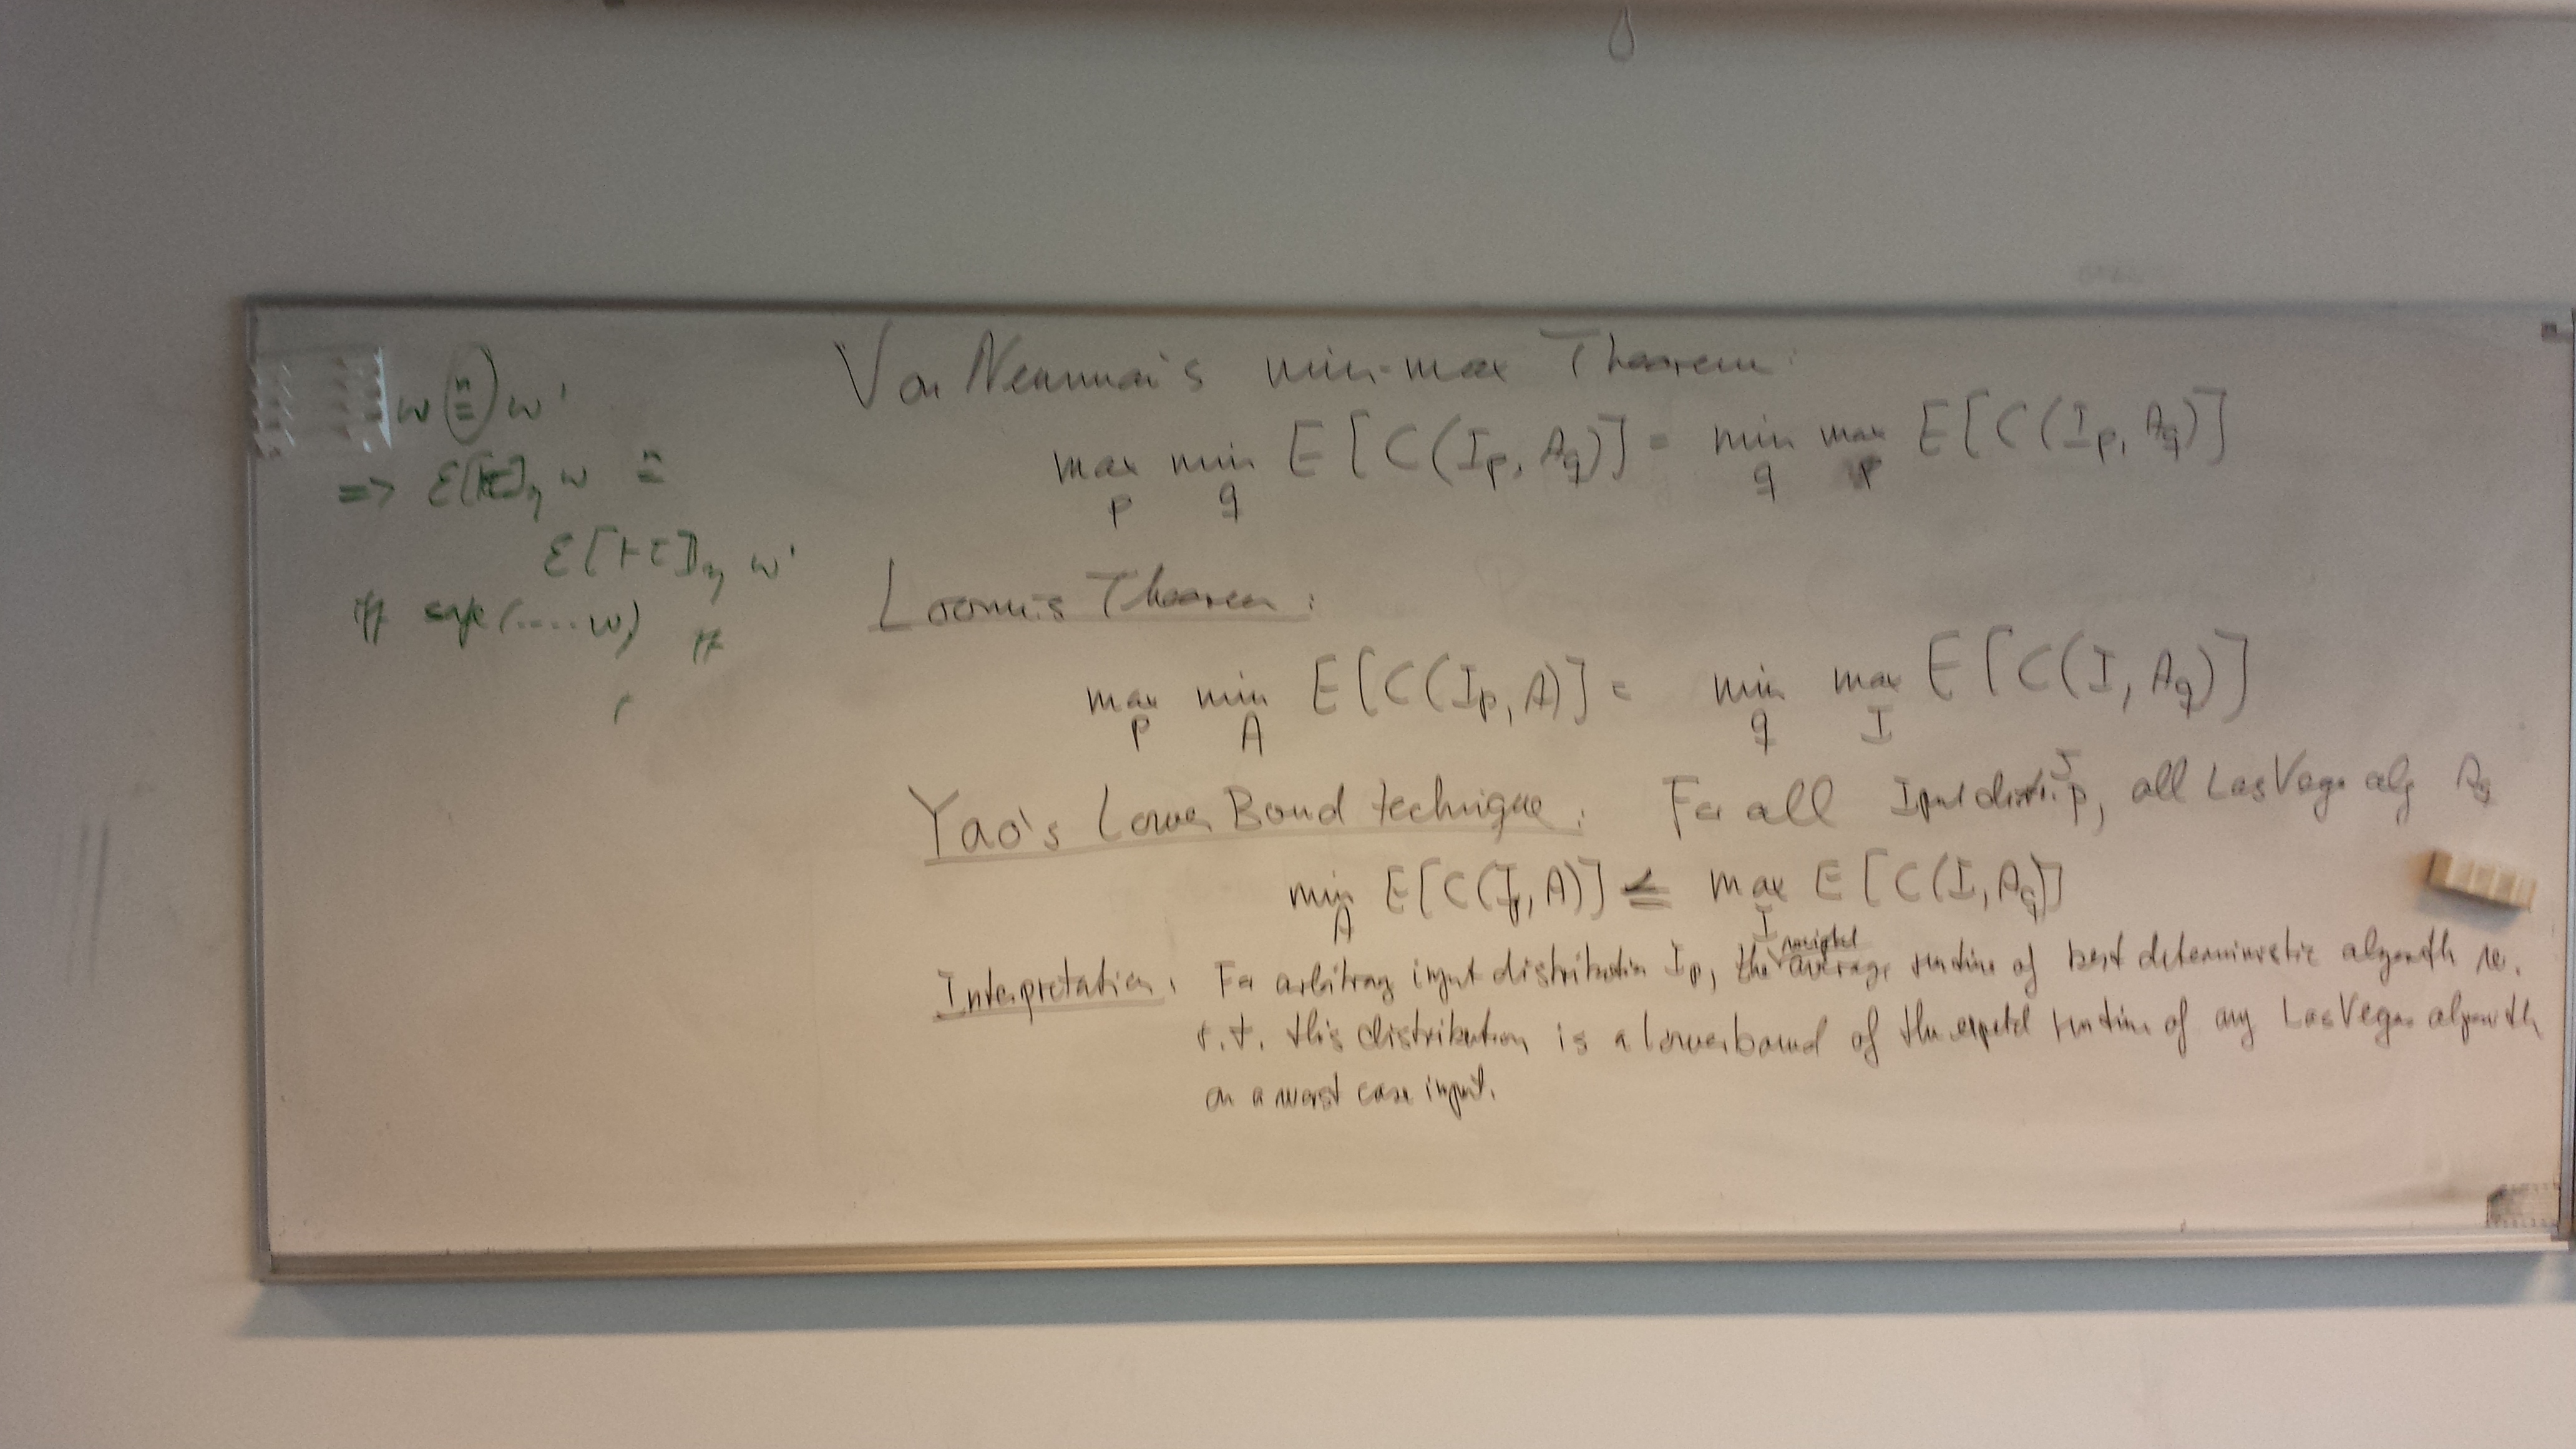 w (n=) w'
=> ε[τ]η w n=
ε[τ]η w'
iff safe(.....w) iff
Von Neumann's min-max Theorem:
max min E[C(I_p, A_q)] = min max E[C(I_p, A_q)]
p q q p
Loomis Theorem:
max min E[C(I_p, A)] = min max E[C(I, A_q)]
p A q I
Yao's Lower Bound technique: For all Input distr. I_p, all Las Vegas alg A_q
min E[C(I_p, A)] ≤ max E[C(I, A_q)]
A I
weighted
Interpretation: For arbitrary input distribution I_p, the average runtime of best deterministic algorithm w.
r.t. this distribution is a lower bound of the expected runtime of any Las Vegas algorithm
on a worst case input.